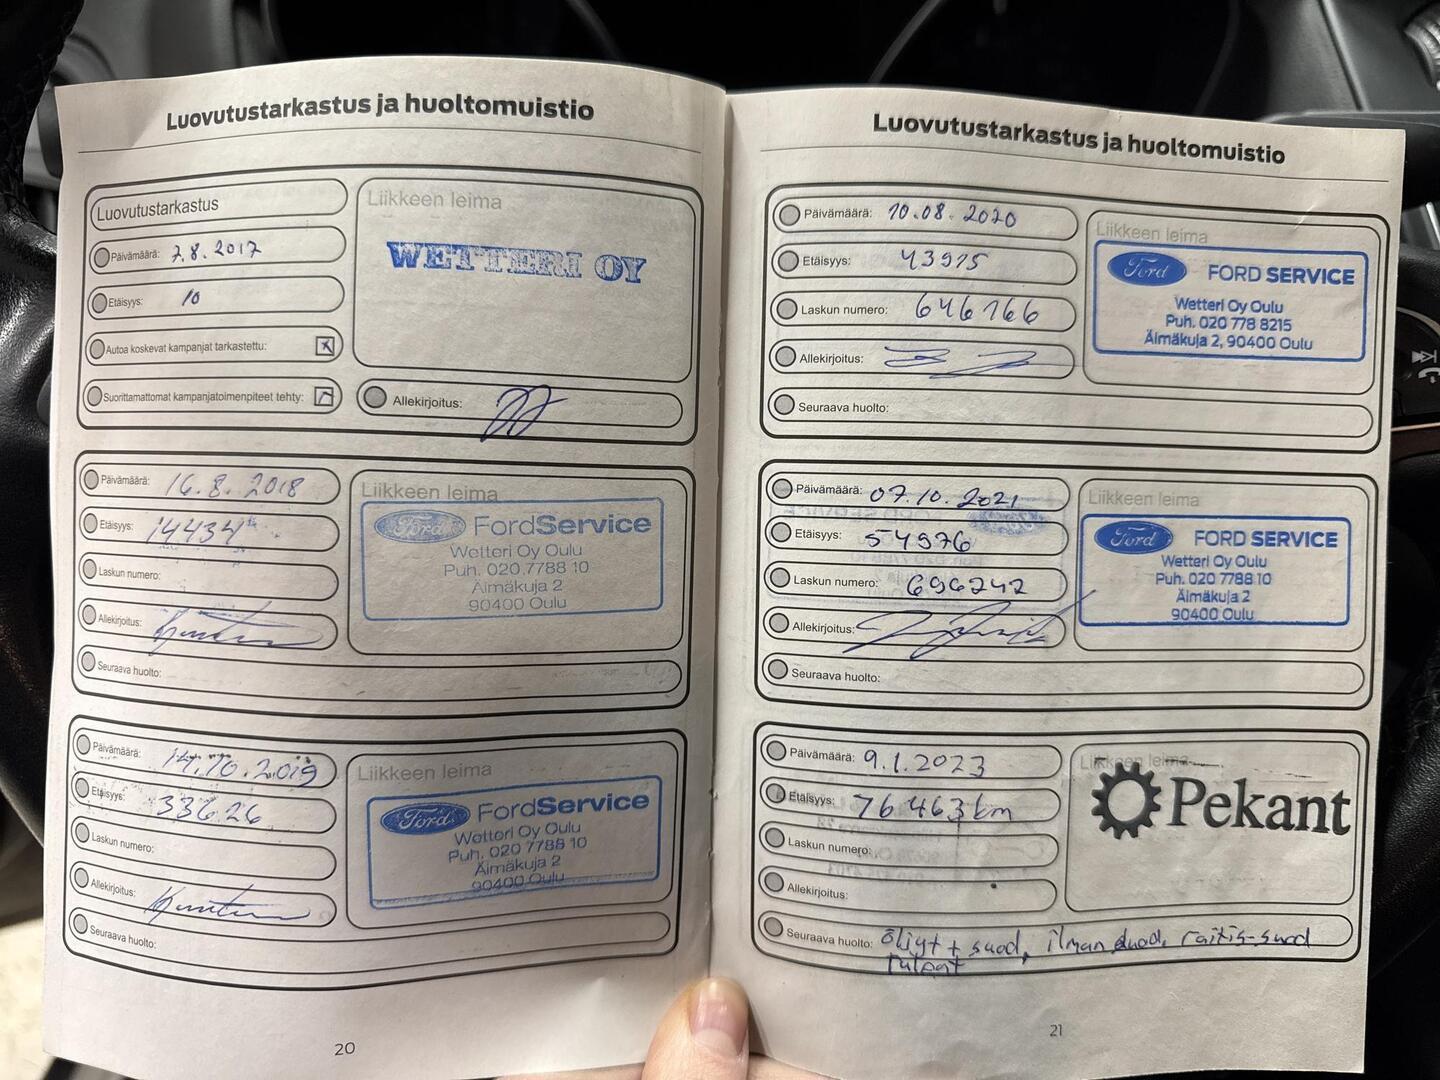 Luovutustarkastus ja huoltomuistio
Luovutustarkastus
Päivämäärä: 7.8.2017
Etäisyys: 10
Autoa koskevat kampanjat tarkastettu:
Suorittamattomat kampanjatoimenpiteet tehty:
Liikkeen leima
WETTERI OY
Allekirjoitus:
Päivämäärä: 16.8.2018
Etäisyys: 14434
Laskun numero:
Allekirjoitus:
Seuraava huolto:
Liikkeen leima
Ford FordService
Wetteri Oy Oulu
Puh. 020 7788 10
Äimäkuja 2
90400 Oulu
Päivämäärä: 14.10.2019
Etäisyys: 33626
Laskun numero:
Allekirjoitus:
Seuraava huolto:
Liikkeen leima
Ford FordService
Wetteri Oy Oulu
Puh. 020 7788 10
Äimäkuja 2
90400 Oulu
20
Luovutustarkastus ja huoltomuistio
Päivämäärä: 10.08.2020
Etäisyys: 43975
Laskun numero: 646166
Allekirjoitus:
Seuraava huolto:
Liikkeen leima
Ford FORD SERVICE
Wetteri Oy Oulu
Puh. 020 778 8215
Äimäkuja 2, 90400 Oulu
Päivämäärä: 07.10.2021
Etäisyys: 54976
Laskun numero: 696242
Allekirjoitus:
Seuraava huolto:
Liikkeen leima
Ford FORD SERVICE
Wetteri Oy Oulu
Puh. 020 7788 10
Äimäkuja 2
90400 Oulu
Päivämäärä: 9.1.2023
Etäisyys: 76463 km
Laskun numero:
Allekirjoitus:
Seuraava huolto: öljyt + suod, ilman suod, raitis-suod
Liikkeen leima
Pekant
21